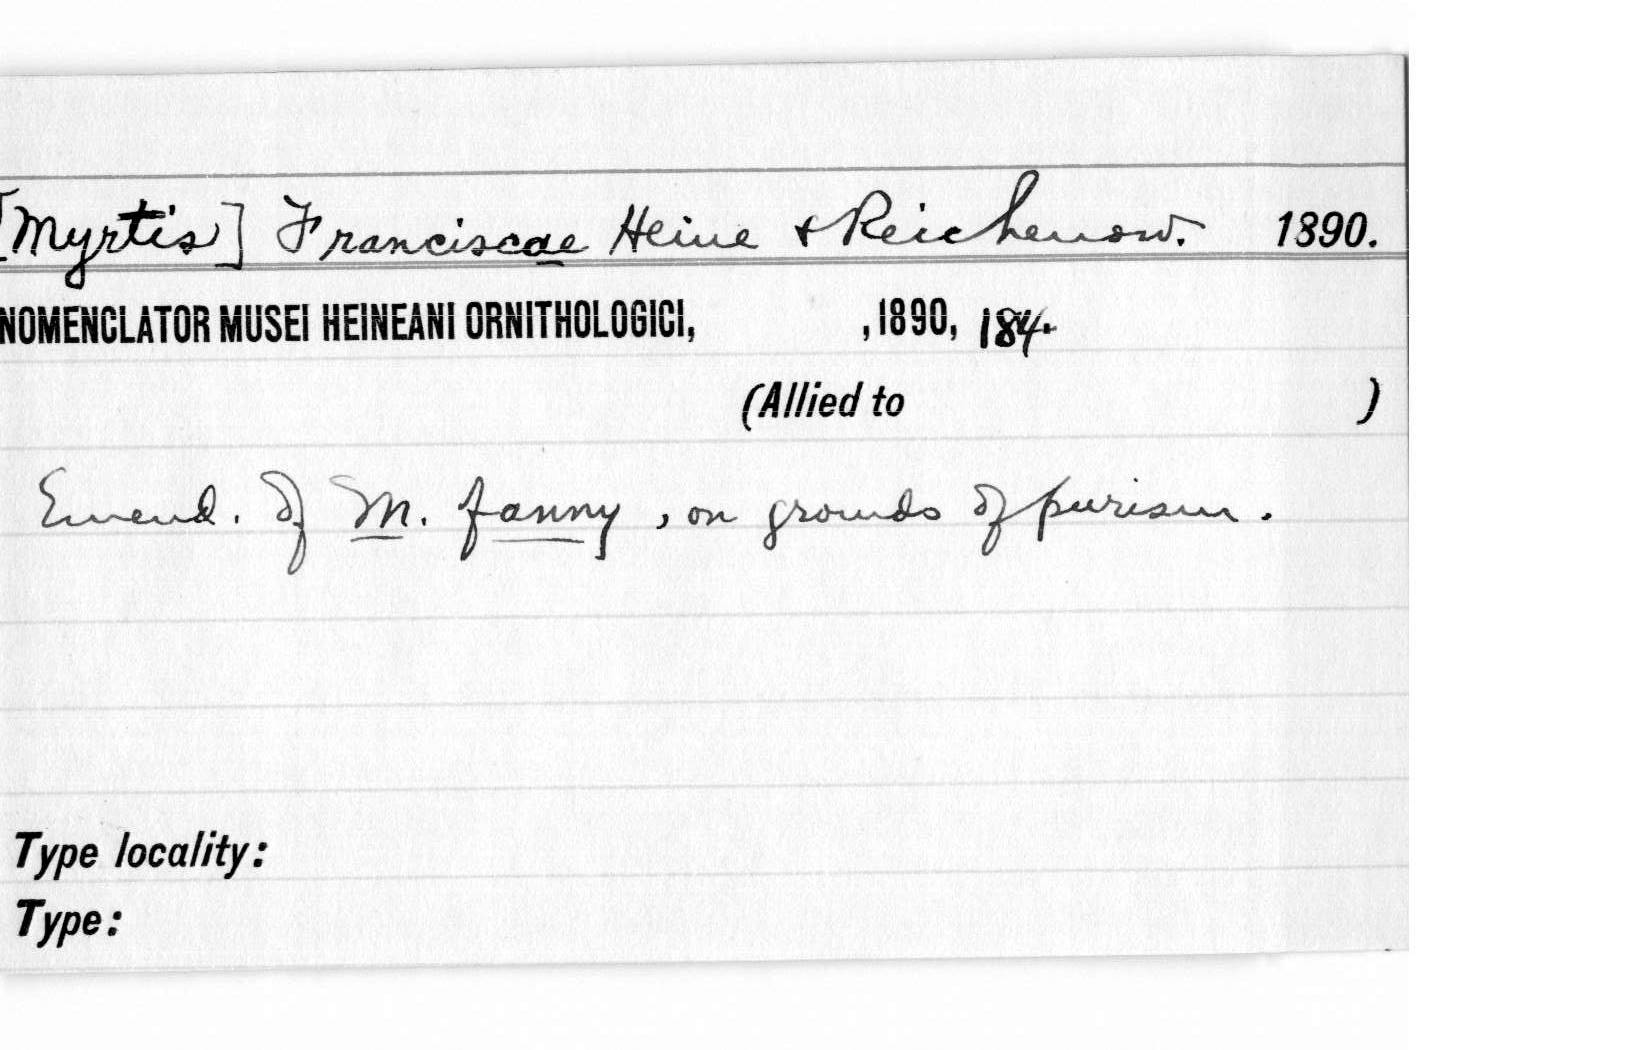 [Myrtis] Franciscae Heine & Reichenow. 1890.
NOMENCLATOR MUSEI HEINEANI ORNITHOLOGICI, , 1890, 184.
(Allied to )
Emend. of M. fanny, on grounds of purism.
Type locality:
Type: